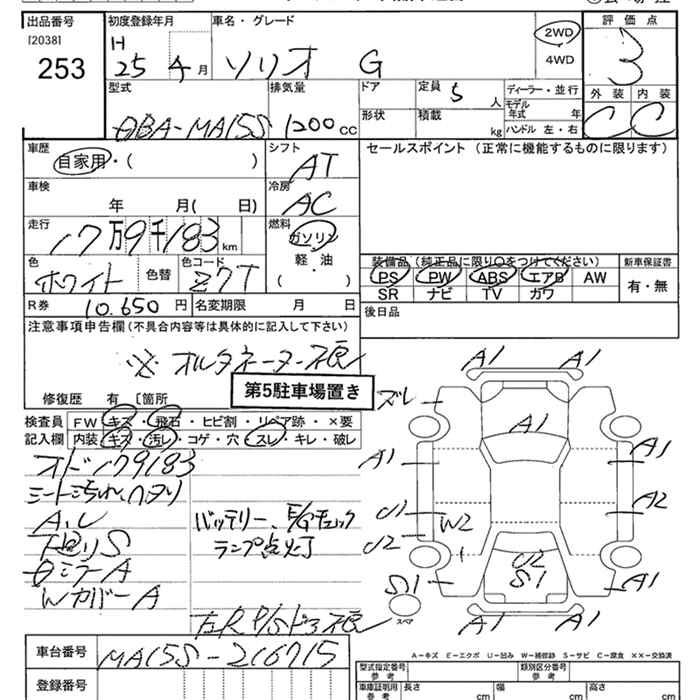 出品番号 初度登録年月 車名・グレード 評価点
[2038] H 2WD
253 25年 月 ソリオ G 4WD 3
型式 排気量 ドア 定員 5人 ディーラー・並行 外装 内装
モデル年式 年
DBA-MA15S 1200cc 形状 積載 kg ハンドル 左・右 C C
車歴 シフト セールスポイント (正常に機能するものに限ります)
自家用・( ) AT
車検 冷房
年 月( 日) AC
走行 燃料
17万9千183km ガソリン
軽・油
色 色替 色コード ( ) 装備品(純正品に限り○をつけてください) 新車保証書
ホワイト Z7T PS PW ABS エアB AW 有・無
SR ナビ TV カワ
R券 10,650円 名変期限 月 日 後日品
注意事項申告欄(不具合内容等は具体的に記入して下さい)
※オルタネーター不良
第5駐車場置き
修復歴 有 [箇所
検査員 FW キズ・飛石・ヒビ割・リペア跡・×要
記入欄 内装 キズ・汚レ・コゲ・穴・スレ・キレ・破レ
オド179183
シート汚れ、ヘタリ
A,ル バッテリー、E/Gチェック
下廻りS ランプ点灯
ミラーA
WカバーA
左R P/Sドア不良
A1 A1
ズレ
A1
A1 A1
U1 W2 A2
U2
U2
S1 S1 A1
スペア
A1 A1
A-キズ E-エクボ U-凹み W-補修跡 S-サビ C-腐食 XX-交換済
車台番号 MA15S-216715
型式指定番号 参考 類別区分番号 参考
登録番号 車庫証明用 参考 長さ cm 幅 cm 高さ cm